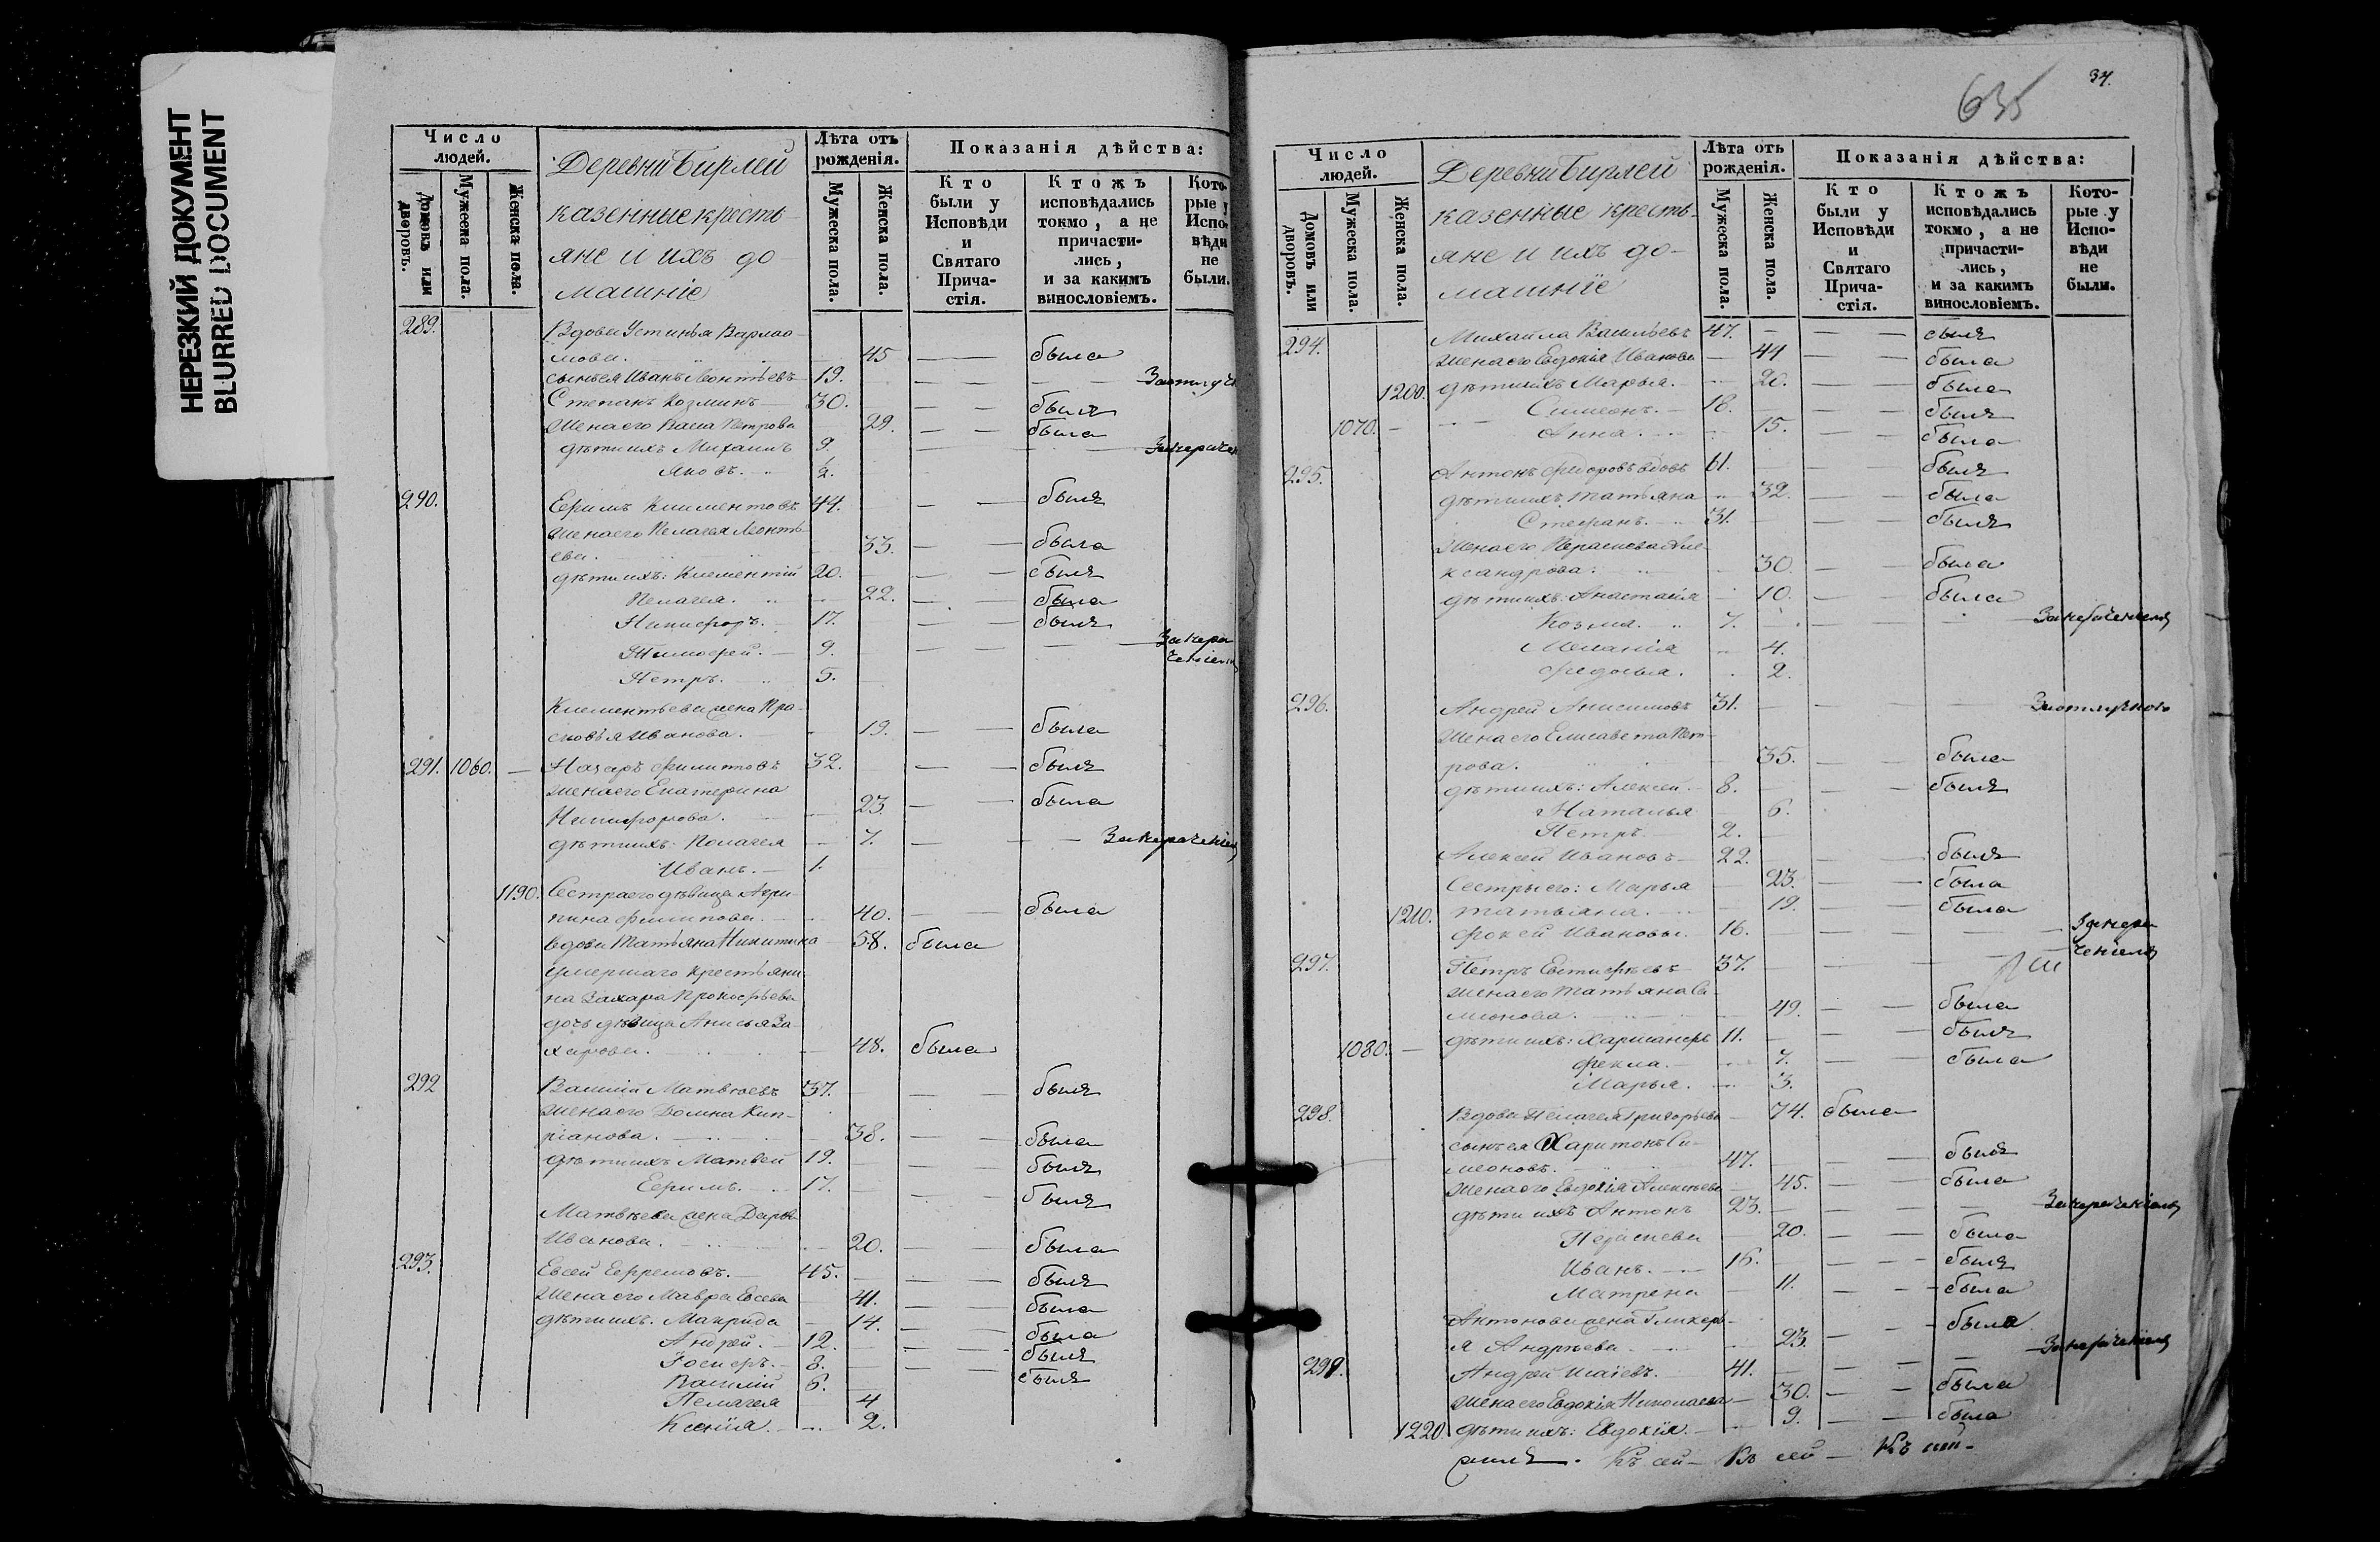 НЕРЕЗКИЙ ДОКУМЕНТ
BLURRED DOCUMENT
Число людей.
Домовъ или дворовъ.
Мужеска пола.
Женска пола.
Деревни Бирлей
казенные кресть-
яне и ихъ до-
машніе
Лѣта отъ рожденія.
Мужеска пола.
Женска пола.
Показанія дѣйства:
Кто были у Исповѣди и Святаго Прича-стія.
Ктожъ исповѣдались токмо, а не причасти-лись, и за какимъ винословіемъ.
Кото-рые у Испо-вѣди не были.
289. Вдова Устинья Варлао-
мова. 45 была
сынъ ея Иванъ Леонтьевъ 19. За отлуч
Степанъ Козминъ 30. былъ
жена его Васса Петрова 29. была
дѣти ихъ Михаилъ 9. За нераче
Яковъ. 2.
290. Ефимъ Климентовъ 44. былъ
жена его Пелагея Леонть-
ева. 33. была
дѣти ихъ: Климентій 20. былъ
Пелагея. 22. была
Никифоръ. 17. былъ
Тимофей. 9. За нера
ченіемъ
Петръ. 5.
Климентьева жена Пра-
сковья Иванова. 19. была
291. 1060. Назаръ Филиповъ 32. былъ
жена его Екатерина
Никифорова. 23. была
дѣти ихъ: Пелагея 7. За нераченіем
Иванъ. 1.
1190. Сестра его дѣвица Агри-
пина Филипова. 40. была
вдова Татьяна Никитина 58. была
умершаго крестьяни-
на Захара Прокофьева
дочь дѣвица Анисья За-
харова. 48. была
292 Василій Матвѣевъ 37. былъ
жена его Домна Кип-
ріанова. 38. была
дѣти ихъ Матвей 19. былъ
Ефимъ. 17. былъ
Матвѣева жена Дарья
Иванова. 20. была
293. Евсей Ефремовъ. 45. былъ
жена его Мавра Евсева 41. была
дѣти ихъ. Макрида 14. была
Андрей. 12. былъ
Іосифъ. 8. былъ
Василій 6.
Пелагея 4
Ксенія. 2.
635
34.
Число людей.
Домовъ или дворовъ.
Мужеска пола.
Женска пола.
Деревни Бирлей
казенные кресть-
яне и ихъ до-
машніе
Лѣта отъ рожденія.
Мужеска пола.
Женска пола.
Показанія дѣйства:
Кто были у Исповѣди и Святаго Прича-стія.
Ктожъ исповѣдались токмо, а не причасти-лись, и за какимъ винословіемъ.
Кото-рые у Испо-вѣди не были.
294. Михайла Васильевъ 47. былъ
жена его Евдокія Иванова 44 была
1200. дѣти ихъ Марья. 20. была
Симеонъ. 18. былъ
1070. Анна. 15. была
295. Антонъ Федоровъ вдовъ 61. былъ
дѣти ихъ Татьяна 32. была
Стефанъ. 31. былъ
жена его Парасковья Але-
ксандрова. 30 была
дѣти ихъ. Анастасія 10. была
Козма. 7. За нераченіемъ
Меланія 4.
Федосья. 2.
296. Андрей Анисимовъ 31. За отлучкою
жена его Елисавета Пет-
рова. 35. была
дѣти ихъ: Алексей. 8. былъ
Наталья 6.
Петръ. 2.
Алексей Ивановъ 22. былъ
Сестры его: Марья 23. была
1210. Татьяна. 19. была
Фокей Ивановы. 16. За нера
ченіемъ
297. Петръ Евстифѣевъ 37.
жена его Татьяна Си-
меонова. 49. была
1080. дѣти ихъ: Харисанфъ 11. былъ
Фекла. 7. была
Марья. 3.
298. Вдова Пелагея Григорьева 74. была
сынъ ея Харитонъ Си-
меоновъ. 47. былъ
жена его Евдокія Алексѣева 45. была
дѣти ихъ Антонъ 23. За нераченіемъ
Парасковья 20. была
Иванъ. 16. былъ
Матрена 11. была
Антонова жена Гликер-
я Андрѣева. 23. была
299. Андрей Исаіевъ. 41. За нераченіемъ
жена его Евдокія Николаева 30. была
1220. дѣти ихъ: Евдокія. 9. была
Къ сей Къ сей Къ сей